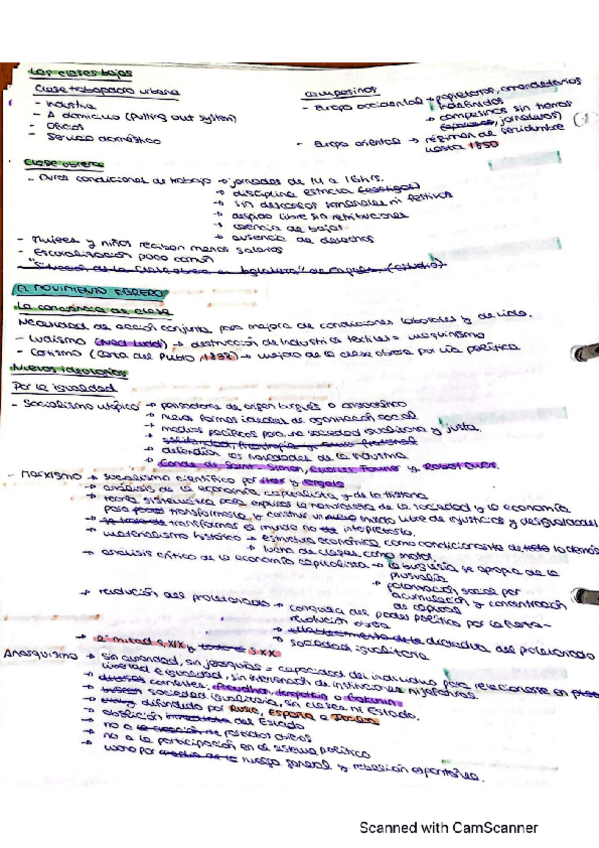 Las clases bajas
Clase trabajadora urbana
- Industria
- A domicilio (Putting out system)
- Oficios
- Servicio doméstico
campesinos
- Europa occidental → propietarios, arrendatarios
indefinidos
→ campesinos sin tierras
jornaleros)
- Europa oriental → régimen de servidumbre
hasta 1850
Clase obrera
- Duras condiciones de trabajo → jornadas de 14 a 16hrs.
→ disciplina estricta
→ sin descansos semanales ni festivos
→ despido libre sin retribuciones
→ carencia de bajas
→ ausencia de derechos
- Mujeres y niños reciben menos salarios
- Escolarización poco común
EL MOVIMIENTO OBRERO
La conciencia de clase
Necesidad de acción conjunta para mejora de condiciones laborales y de vida.
- Ludismo (Ned Ludd) → destrucción de industrias textiles = maquinismo
- Cartismo (Carta del Pueblo, 1838) → mejora de la clase obrera por vía política
Nuevas ideologías
Por la igualdad
- Socialismo utópico → pensadores de origen burgués o
→ nueva formas ideales de organización social
→ medios pacíficos para una sociedad igualitaria y justa.
→ solidaridad, filantropía y amor fraternal
→ defendían las novedades de la industria
→ Conde de Saint-Simon, Charles Fourier y Robert Owen.
- Marxismo → socialismo científico por Marx y Engels
→ análisis de la economía capitalista y de la historia
→ teoría sistemática para explicar la naturaleza de la sociedad y la economía
para transformarla y construir un mundo libre de injusticias y desigualdades
→ transformar el mundo no interpretarlo.
→ materialismo histórico → estructura económica como condicionante de todo lo demás
→ lucha de clases como motor
→ análisis crítico de la economía capitalista → la burguesía se apropia de la
plusvalía
→ polarización social por
acumulación y concentración
de capital
→ revolución del proletariado → conquista del poder político por la
revolución obrera
→ dictadura del proletariado
→ sociedad igualitaria
→ 2ª mitad s. XIX y s. XX
Anarquismo → sin autoridad, sin jerarquías = capacidad del individuo para relacionarse en
libertad e igualdad, sin intervención de instituciones ni jefaturas.
→ diversas corrientes, Proudhon, Kropotkin o Bakunin
→ sociedad igualitaria, sin clases ni Estado.
→ difundido por Rusia, España e Italia
→ abolición del Estado
→ no a partidos obreros
→ no a la participación en el sistema político
→ lucha por huelga general y rebelión espontánea.
Scanned with CamScanner